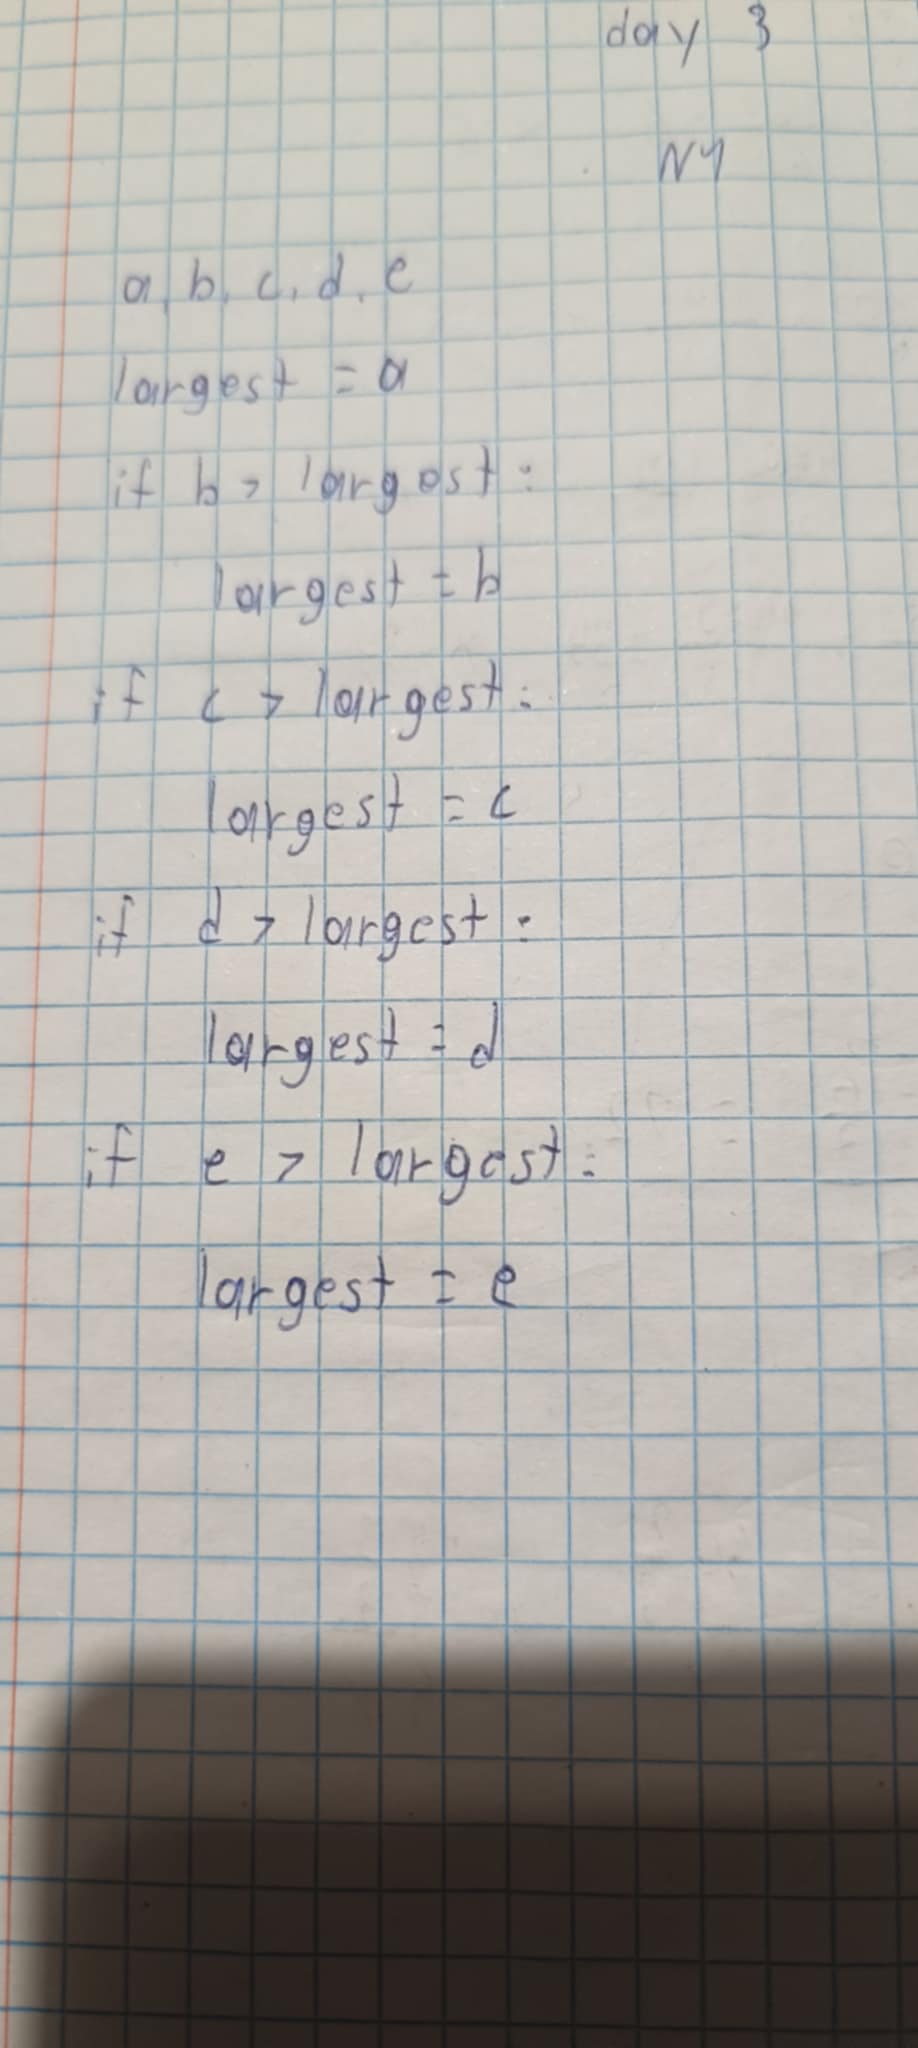 day 3
N1
a, b, c, d, e
largest = a
if b > largest:
largest = b
if c > largest:
largest = c
if d > largest:
largest = d
if e > largest:
largest = e